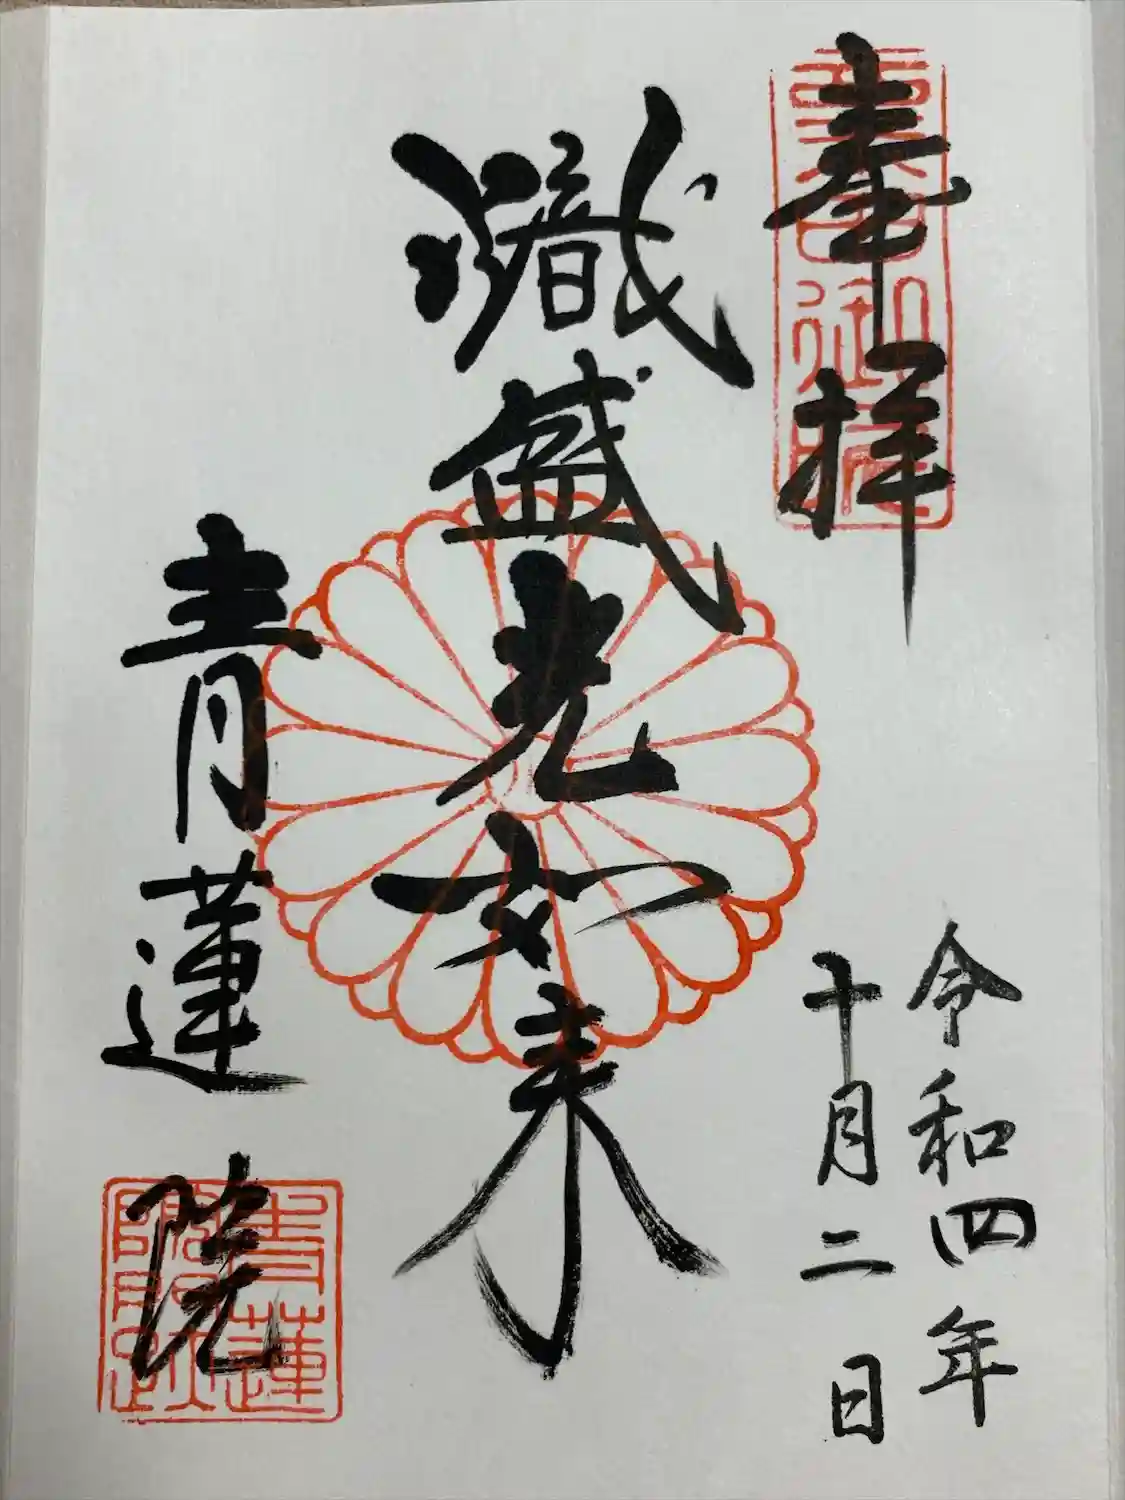 奉拝
令和四年
十月二日
熾盛光如来
青蓮院
青蓮院門跡